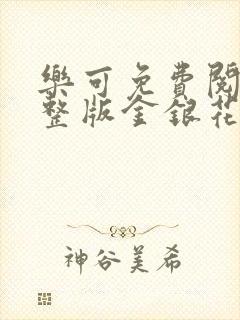 樂可免費閱
整版金銀花
神谷美希